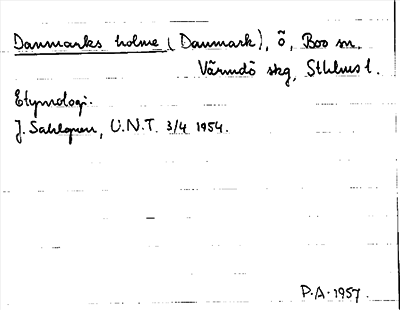 Danmarks holme (Danmark), ö, Boo sn.
Värmdö skg, Sthlms l.
Etymologi.
J. Sahlgren, U.N.T. 3/4 1954.
P.A. 1957.